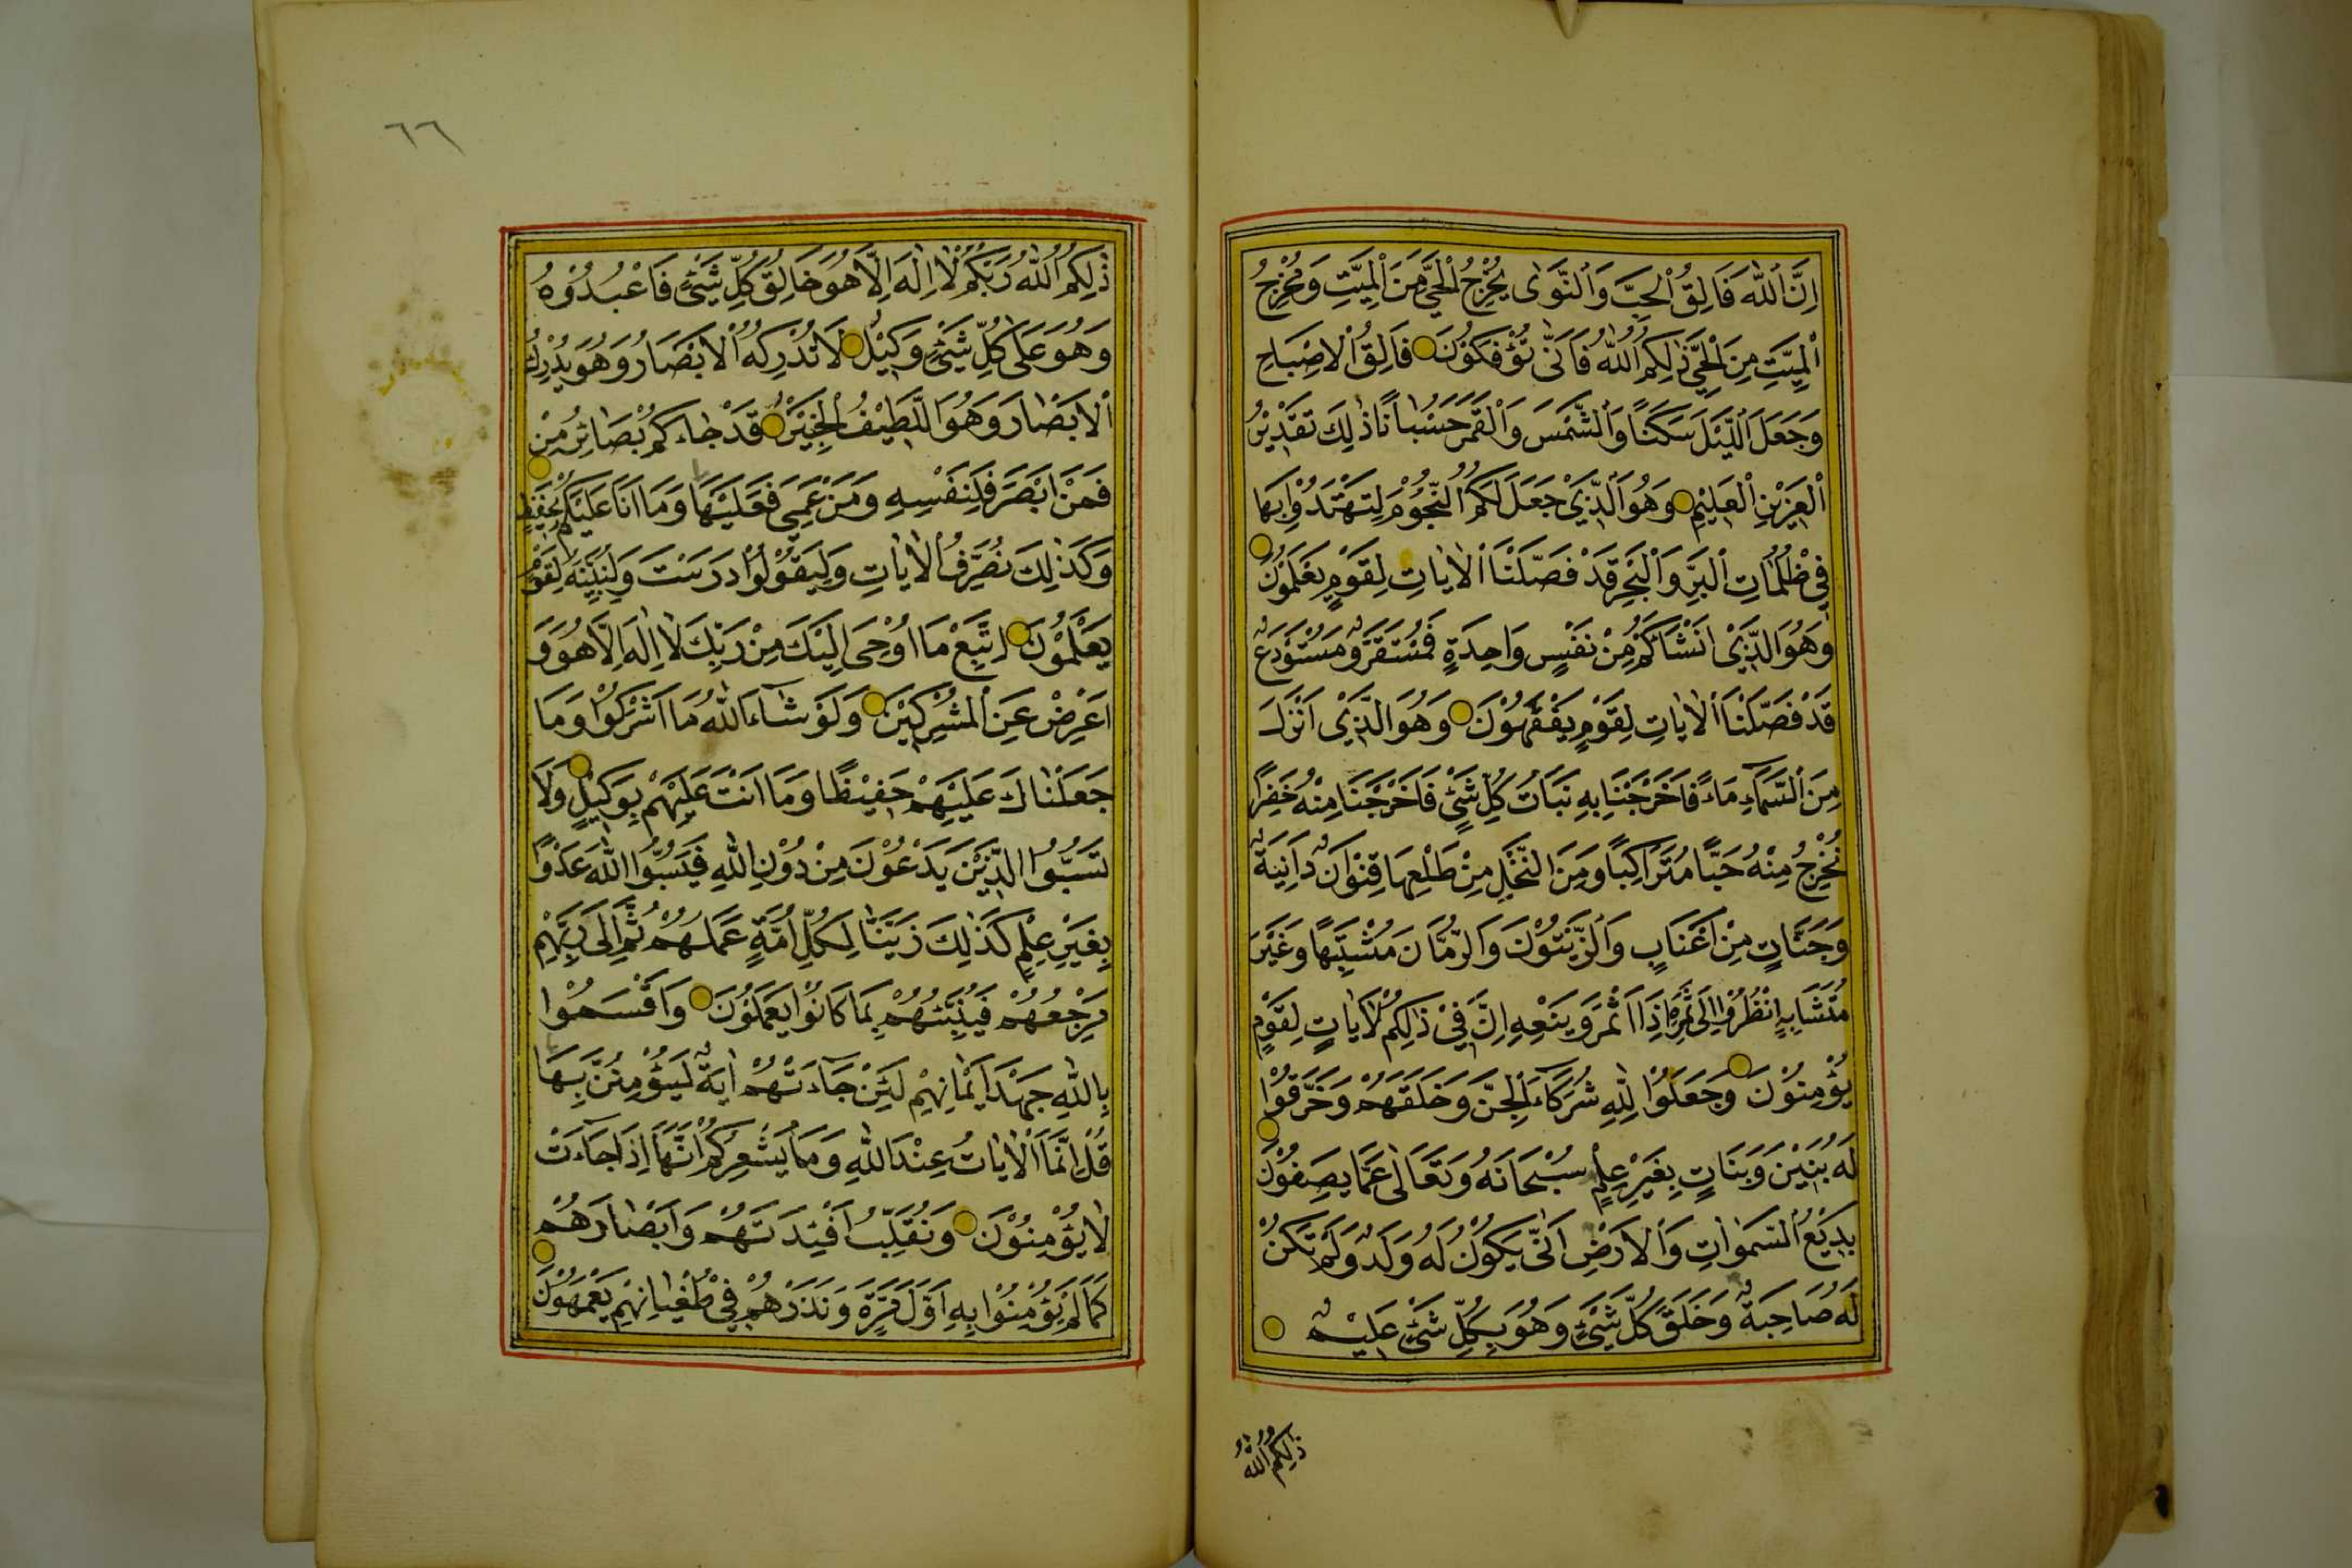 اِنَّ اللّٰهَ فَالِقُ الْحَبِّ وَالنَّوٰى يُخْرِجُ الْحَيَّ مِنَ الْمَيِّتِ وَمُخْرِجُ
الْمَيِّتِ مِنَ الْحَيِّ ذٰلِكُمُ اللّٰهُ فَاَنّٰى تُؤْفَكُوْنَ فَالِقُ الْاِصْبَاحِ
وَجَعَلَ اللَّيْلَ سَكَنًا وَالشَّمْسَ وَالْقَمَرَ حُسْبَانًا ذٰلِكَ تَقْدِيْرُ
الْعَزِيْزِ الْعَلِيْمِ وَهُوَ الَّذِيْ جَعَلَ لَكُمُ النُّجُوْمَ لِتَهْتَدُوْا بِهَا
فِيْ ظُلُمَاتِ الْبَرِّ وَالْبَحْرِ قَدْ فَصَّلْنَا الْاٰيَاتِ لِقَوْمٍ يَعْلَمُوْنَ
وَهُوَ الَّذِيْ اَنْشَاَكُمْ مِنْ نَفْسٍ وَاحِدَةٍ فَمُسْتَقَرٌّ وَمُسْتَوْدَعٌ
قَدْ فَصَّلْنَا الْاٰيَاتِ لِقَوْمٍ يَفْقَهُوْنَ وَهُوَ الَّذِيْ اَنْزَلَ
مِنَ السَّمَآءِ مَاءً فَاَخْرَجْنَا بِهِ نَبَاتَ كُلِّ شَيْءٍ فَاَخْرَجْنَا مِنْهُ خَضِرًا
نُخْرِجُ مِنْهُ حَبًّا مُتَرَاكِبًا وَمِنَ النَّخْلِ مِنْ طَلْعِهَا قِنْوَانٌ دَانِيَةٌ
وَجَنَّاتٍ مِنْ اَعْنَابٍ وَالزَّيْتُوْنَ وَالرُّمَّانَ مُشْتَبِهًا وَغَيْرَ
مُتَشَابِهٍ اُنْظُرُوْا اِلٰى ثَمَرِهِ اِذَا اَثْمَرَ وَيَنْعِهِ اِنَّ فِيْ ذٰلِكُمْ لَاٰيَاتٍ لِقَوْمٍ
يُؤْمِنُوْنَ وَجَعَلُوْا لِلّٰهِ شُرَكَآءَ الْجِنَّ وَخَلَقَهُمْ وَخَرَقُوْا
لَهُ بَنِيْنَ وَبَنَاتٍ بِغَيْرِ عِلْمٍ سُبْحَانَهُ وَتَعَالٰى عَمَّا يَصِفُوْنَ
بَدِيْعُ السَّمٰوَاتِ وَالْاَرْضِ اَنّٰى يَكُوْنُ لَهُ وَلَدٌ وَلَمْ تَكُنْ
لَهُ صَاحِبَةٌ وَخَلَقَ كُلَّ شَيْءٍ وَهُوَ بِكُلِّ شَيْءٍ عَلِيْمٌ
ذٰلِكُمُ اللّٰهُ
٦٦
ذٰلِكُمُ اللّٰهُ رَبُّكُمْ لَا اِلٰهَ اِلَّا هُوَ خَالِقُ كُلِّ شَيْءٍ فَاعْبُدُوْهُ
وَهُوَ عَلٰى كُلِّ شَيْءٍ وَكِيْلٌ لَا تُدْرِكُهُ الْاَبْصَارُ وَهُوَ يُدْرِكُ
الْاَبْصَارَ وَهُوَ اللَّطِيْفُ الْخَبِيْرُ قَدْ جَاءَكُمْ بَصَائِرُ مِنْ
فَمَنْ اَبْصَرَ فَلِنَفْسِهِ وَمَنْ عَمِيَ فَعَلَيْهَا وَمَا اَنَا عَلَيْكُمْ بِحَفِيْظٍ
وَكَذٰلِكَ نُصَرِّفُ الْاٰيَاتِ وَلِيَقُوْلُوْا دَرَسْتَ وَلِنُبَيِّنَهُ لِقَوْمٍ
يَعْلَمُوْنَ اِتَّبِعْ مَا اُوْحِيَ اِلَيْكَ مِنْ رَبِّكَ لَا اِلٰهَ اِلَّا هُوَ وَ
اَعْرِضْ عَنِ الْمُشْرِكِيْنَ وَلَوْ شَآءَ اللّٰهُ مَا اَشْرَكُوْا وَمَا
جَعَلْنَاكَ عَلَيْهِمْ حَفِيْظًا وَمَا اَنْتَ عَلَيْهِمْ بِوَكِيْلٍ وَلَا
تَسُبُّوا الَّذِيْنَ يَدْعُوْنَ مِنْ دُوْنِ اللّٰهِ فَيَسُبُّوا اللّٰهَ عَدْوًا
بِغَيْرِ عِلْمٍ كَذٰلِكَ زَيَّنَّا لِكُلِّ اُمَّةٍ عَمَلَهُمْ ثُمَّ اِلٰى رَبِّهِمْ
مَرْجِعُهُمْ فَيُنَبِّئُهُمْ بِمَا كَانُوْا يَعْمَلُوْنَ وَاَقْسَمُوْا
بِاللّٰهِ جَهْدَ اَيْمَانِهِمْ لَئِنْ جَآءَتْهُمْ اٰيَةٌ لَيُؤْمِنُنَّ بِهَا
قُلْ اِنَّمَا الْاٰيَاتُ عِنْدَ اللّٰهِ وَمَا يُشْعِرُكُمْ اَنَّهَا اِذَا جَآءَتْ
لَا يُؤْمِنُوْنَ وَنُقَلِّبُ اَفْئِدَتَهُمْ وَاَبْصَارَهُمْ
كَمَا لَمْ يُؤْمِنُوْا بِهِ اَوَّلَ مَرَّةٍ وَنَذَرُهُمْ فِيْ طُغْيَانِهِمْ يَعْمَهُوْنَ